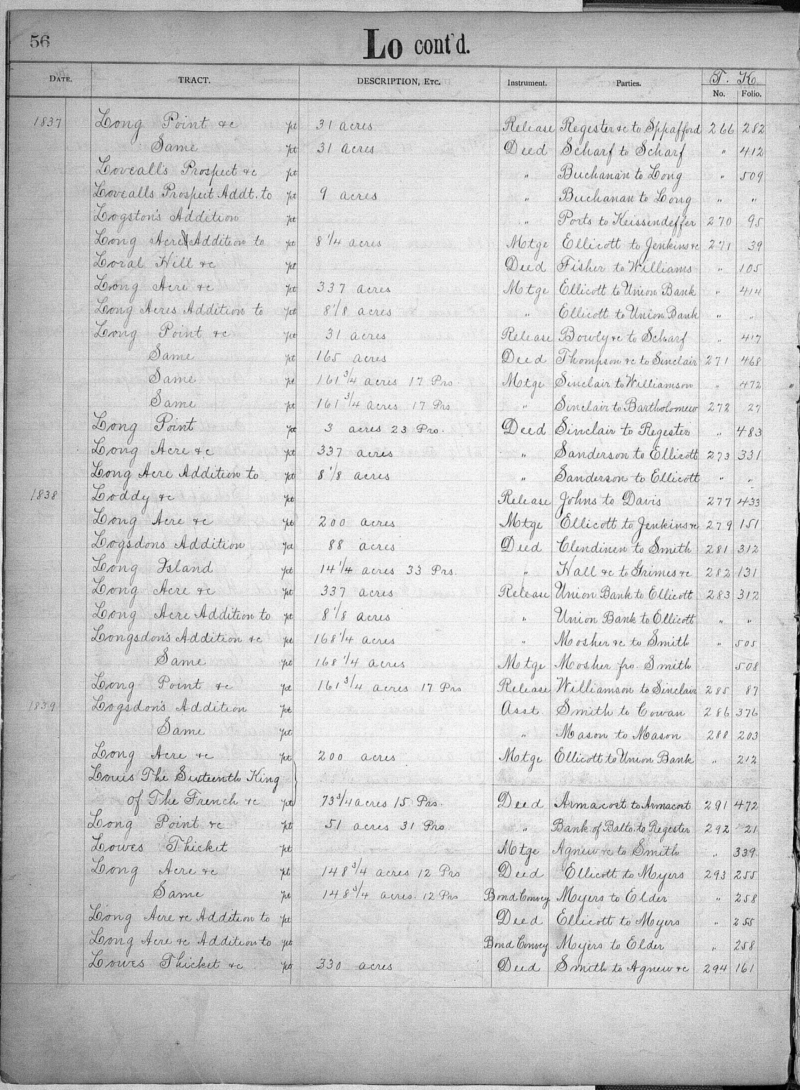 56
Lo cont'd.
DATE. TRACT. DESCRIPTION, ETC. Instrument. Parties. T. K.
No. Folio.
1837 Long Point &c pt 31 acres Release Register &c to Sppafford 266 282
Same pt 31 acres Deed Scharf to Scharf " 412
Lovealls Prospect &c pt " Buchanan to Long " 509
Lovealls Prospect Addt. to pt 9 acres " Buchanan to Long " "
Logston's Addition pt " Ports to Keissendeffer 270 95
Long Acre Addition to pt 8 1/4 acres Mtge Ellicott to Jenkins &c 271 39
Loral Hill &c pt Deed Fisher to Williams " 105
Long Acre &c pt 337 acres Mtge Ellicott to Union Bank " 414
Long Acres Addition to pt 8 1/8 acres " Ellicott to Union Bank " "
Long Point &c pt 31 acres Release Bowly &c to Scharf " 417
Same pt 165 acres Deed Thompson &c to Sinclair 271 468
Same pt 161 3/4 acres 17 Prs Mtge Sinclair to Williamson " 472
Same pt 161 3/4 acres 17 Prs " Sinclair to Bartholomew 272 27
Long Point pt 3 acres 23 Pro. Deed Sinclair to Regester " 483
Long Acre &c pt 337 acres " Sanderson to Ellicott 273 331
Long Acre Addition to pt 8 1/8 acres " Sanderson to Ellicott " "
1838 Loddy &c pt Release Johns to Davis 277 433
Long Acre &c pt 200 acres Mtge Ellicott to Jenkins &c 279 151
Logsdons Addition pt 88 acres Deed Clendinen to Smith 281 312
Long Island pt 14 1/4 acres 33 Prs. " Hall &c to Grimes &c 282 131
Long Acre &c pt 337 acres Release Union Bank to Ellicott 283 312
Long Acre Addition to pt 8 1/8 acres " Union Bank to Ellicott " "
Longsdon's Addition &c pt 168 1/4 acres " Mosher &c to Smith " 505
Same pt 168 1/4 acres Mtge Mosher fro. Smith 508
Long Point &c pt 161 3/4 acres 17 Prs Release Williamson to Sinclair 285 87
1839 Logsdon's Addition pt Asst Smith to Cowan 286 376
Same pt " Mason to Mason 288 203
Long Acre &c pt 200 acres Mtge Ellicott to Union Bank " 212
Louis The Sixteenth King
of The French &c pt 73 3/4 acres 15 Prs. Deed Armacort to Armacort 291 472
Long Point &c pt 51 acres 31 Prs " Bank of Balto. to Regester 292 21
Lowes Thicket pt Mtge Agnew &c to Smith " 339
Long Acre &c pt 148 3/4 acres 12 Prs Deed Ellicott to Myers 293 255
Same pt 148 3/4 acres 12 Prs Bond Convey Myers to Elder " 258
Long Acre &c Addition to pt Deed Ellicott to Myers " 255
Long Acre &c Addition to pt Bond Convey Myers to Elder " 258
Lowes Thicket &c pt 330 acres Deed Smith to Agnew &c 294 161